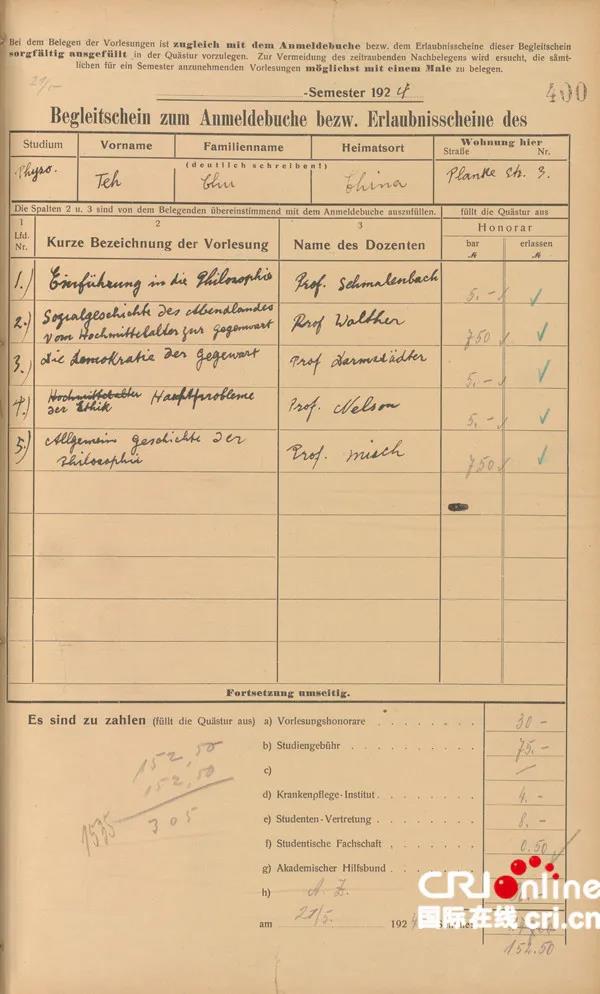 Bei dem Belegen der Vorlesungen ist zugleich mit dem Anmeldebuche bezw. dem Erlaubnisscheine dieser Begleitschein
sorgfältig ausgefüllt in der Quästur vorzulegen. Zur Vermeidung des zeitraubenden Nachbelegens wird ersucht, die sämt-
lichen für ein Semester anzunehmenden Vorlesungen möglichst mit einem Male zu belegen.
-Semester 1924
400
Begleitschein zum Anmeldebuche bezw. Erlaubnisscheine des
Studium Vorname Familienname Heimatsort Wohnung hier
Straße Nr.
(deutlich schreiben!)
Teh Chu China Planke Str. 3.
Die Spalten 2 u. 3 sind von dem Belegenden übereinstimmend mit dem Anmeldebuche auszufüllen. füllt die Quästur aus
1 2 3 Honorar
Lfd. Nr. Kurze Bezeichnung der Vorlesung Name des Dozenten bar erlassen
1.) Einführung in die Philosophie Prof. Schmalenbach 5.-
2.) Sozialgeschichte des Abendlandes
vom Hochmittelalter zur Gegenwart Prof Walther 7.50
3.) Die Demokratie der Gegenwart Prof Darmstädter 5.-
4.) Hochmittelalter Hauptprobleme
der Ethik Prof. Nelson 5.-
5.) Allgemein geschichte der
Philosophie Prof. Misch 7.50
Fortsetzung umseitig.
Es sind zu zahlen (füllt die Quästur aus) a) Vorlesungshonorare 30-
b) Studiengebühr 75.-
c)
d) Krankenpflege-Institut 4.-
e) Studenten-Vertretung 8.-
f) Studentische Fachschaft 0.50
g) Akademischer Hilfsbund
h) A. Z.
152,50
152,50
305
am 21/5. 192
152.50
CRI Online
国际在线 cri.cn